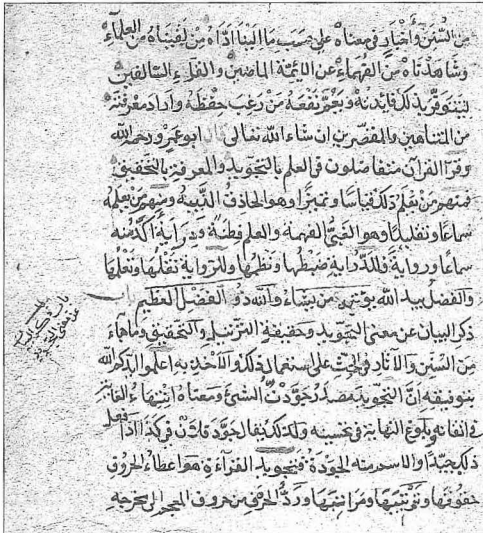 من السنن وأخبار في معناه على حسب ما الينا اداه من لقيناه من العلماء
وشاهدناه من الفهماء عن الائمة الماضين والقراء السالفين
ليتوفر بذلك فائدته ويعم نفعه من رغب حفظه واراد معرفته
من المتناهين والمقصرين ان شاء الله تعالى قال ابو عمرو رحمه الله
وقراء القرآن متفاضلون في العلم بالتجويد والمعرفة بالتحقيق
فمنهم من يعلم ذلك قياسا وتمييزا وهو الحاذق النبيه ومنهم من يعلمه
سماعا وتقليدا وهو الغبي الفهيه والعلم فطنة ودراية اكد منه
سماعا ورواية فللدراية ضبطها ونظمها وللرواية نقلها وتعلمها
والفضل بيد الله يؤتيه من يشاء والله ذو الفضل العظيم باب
ذكر البيان عن معنى التجويد وحقيقة الترتيل والتحقيق وما جاء
من السنن والآثار في الحث على استعمال ذلك والاخذ به اعلموا ايدكم الله
بتوفيقه ان التجويد مصدر جودت الشيء ومعناه انتهاء الغاية
في اتقانه وبلوغ النهاية في تحسينه ولذلك يقال جود فلان في كذا اذا فعل
ذلك جيدا والاسم منه الجودة فتجويد القراءة هو اعطاء الحروف
حقوقها وترتيبها ومراتبها ورد الحرف من حروف المعجم الى مخرجه
باب ذكر البيان
عن معنى التجويد